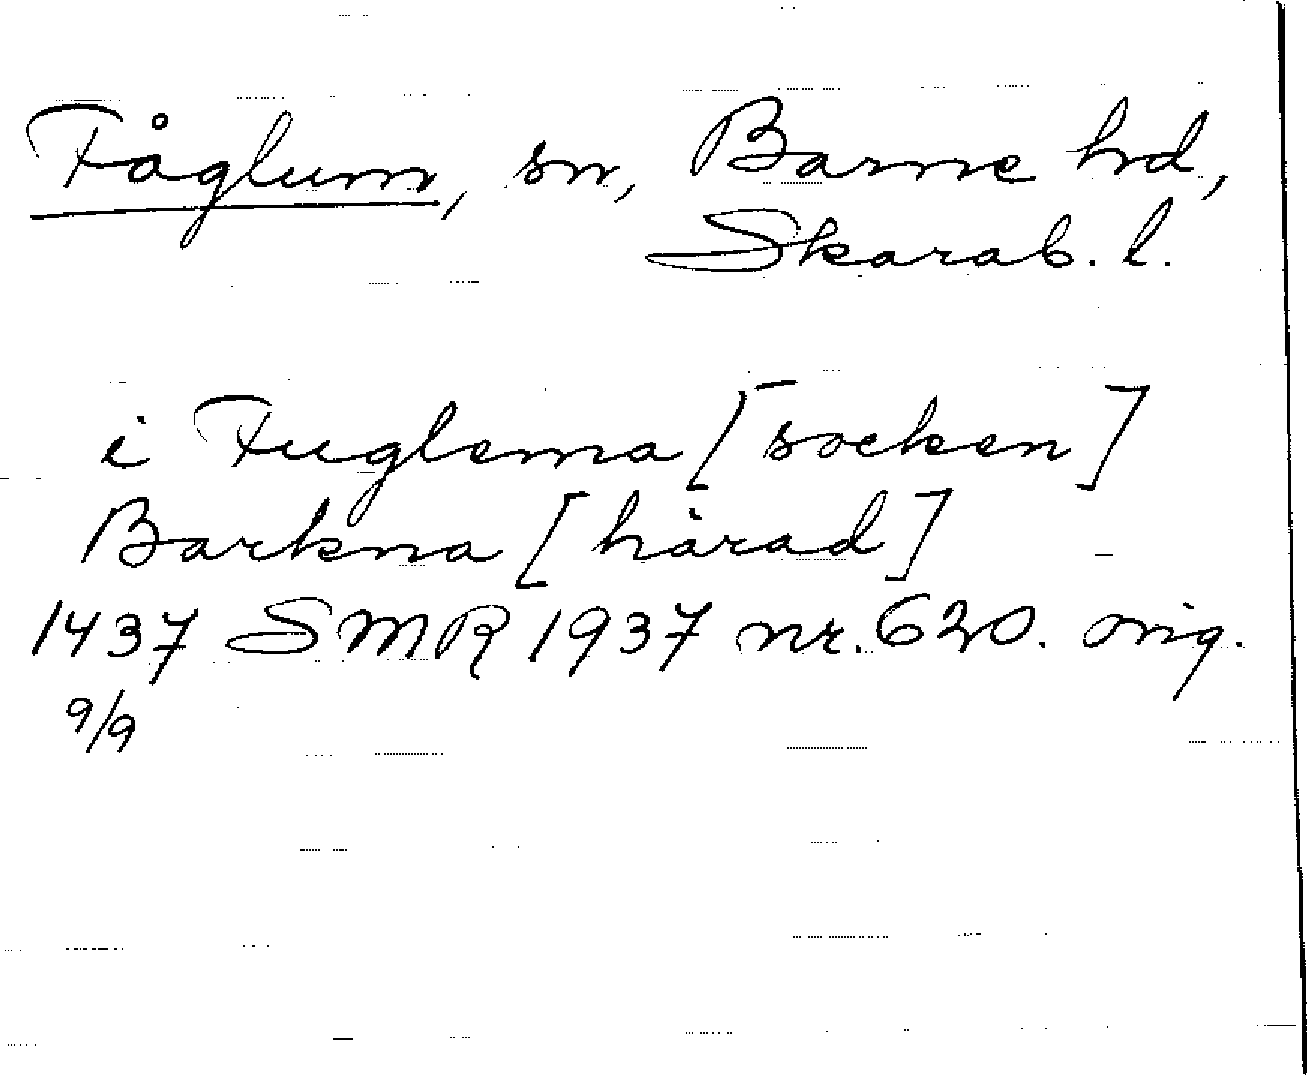 Fåglum, sn, Barne hd,
Skarab. l.
i Fuglema [socken]
Barkna [härad]
1437 SMR 1937 nr. 620. orig.
9/9